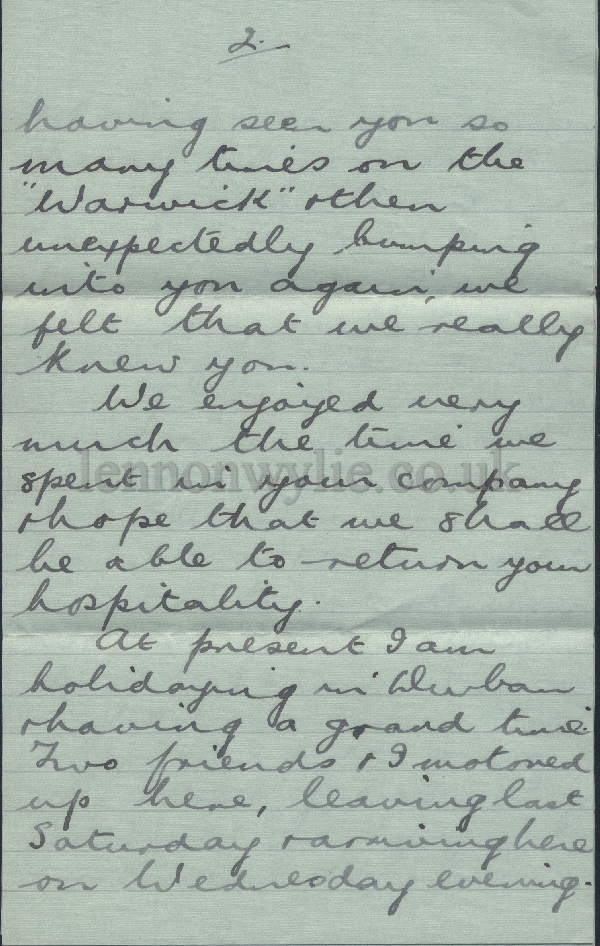 2.
having seen you so
many times on the
"Warwick" & then
unexpectedly bumping
into you again, we
felt that we really
knew you.
We enjoyed very
much the time we
lennonwylie.co.uk
spent in your company
& hope that we shall
be able to return your
hospitality.
At present I am
holidaying in Durban
& having a grand time.
Two friends & I motored
up here, leaving last
Saturday & arriving here
on Wednesday evening.